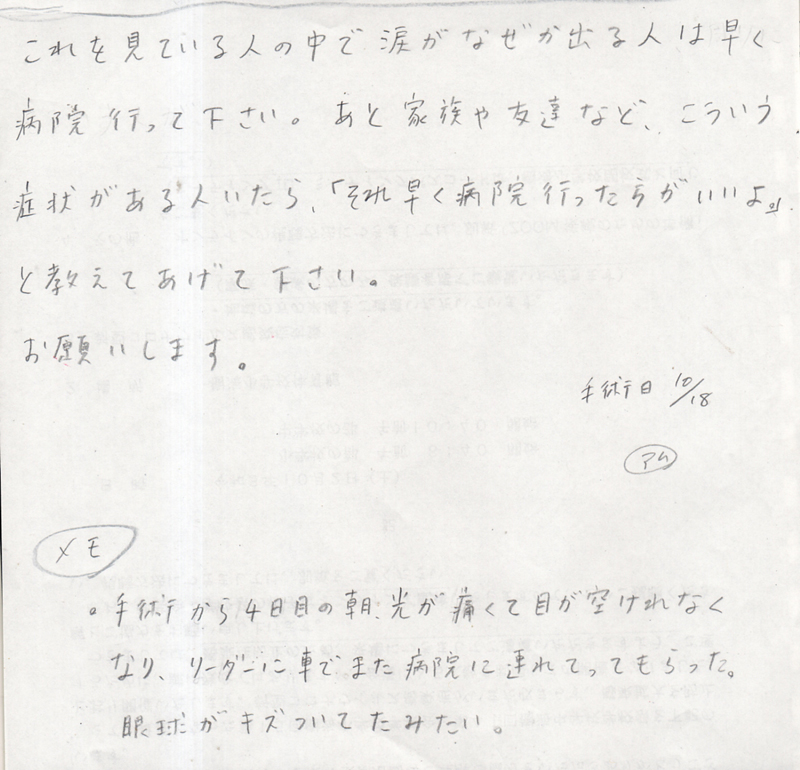 これを見ている人の中で涙がなぜか出る人は早く
病院行って下さい。あと家族や友達など、こういう
症状がある人いたら、「それ早く病院行ったらがいいよ。」
と教えてあげて下さい。
お願いします。
手術日 10/18
アム
メモ
。手術から4日目の朝、光が痛くて目が空けれなく
なり、リーダに車でまた病院に連れてってもらった。
眼球がキズついてたみたい。